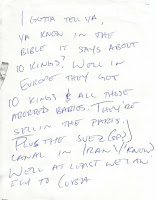 I GOTTA TELL YA,
YA KNOW IN THE
BIBLE IT SAYS ABOUT
10 KINGS? WELL IN
EUROPE THEY GOT
10 KINGS & ALL THOSE
ABORTED BABIES. THEY'RE
SELLIN THE PARTS.
PLUS THE SUEZ (GOD)
CANAL IN IRAN (Y'KNOW)
WELL AT LEAST WE CAN
FLY TO CUBA